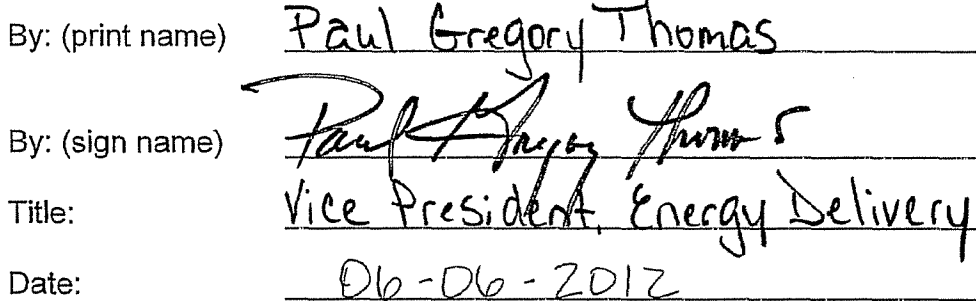 By: (print name) Paul Gregory Thomas
By: (sign name) Paul Gregory Thomas
Title: Vice President, Energy Delivery
Date: 06-06-2012